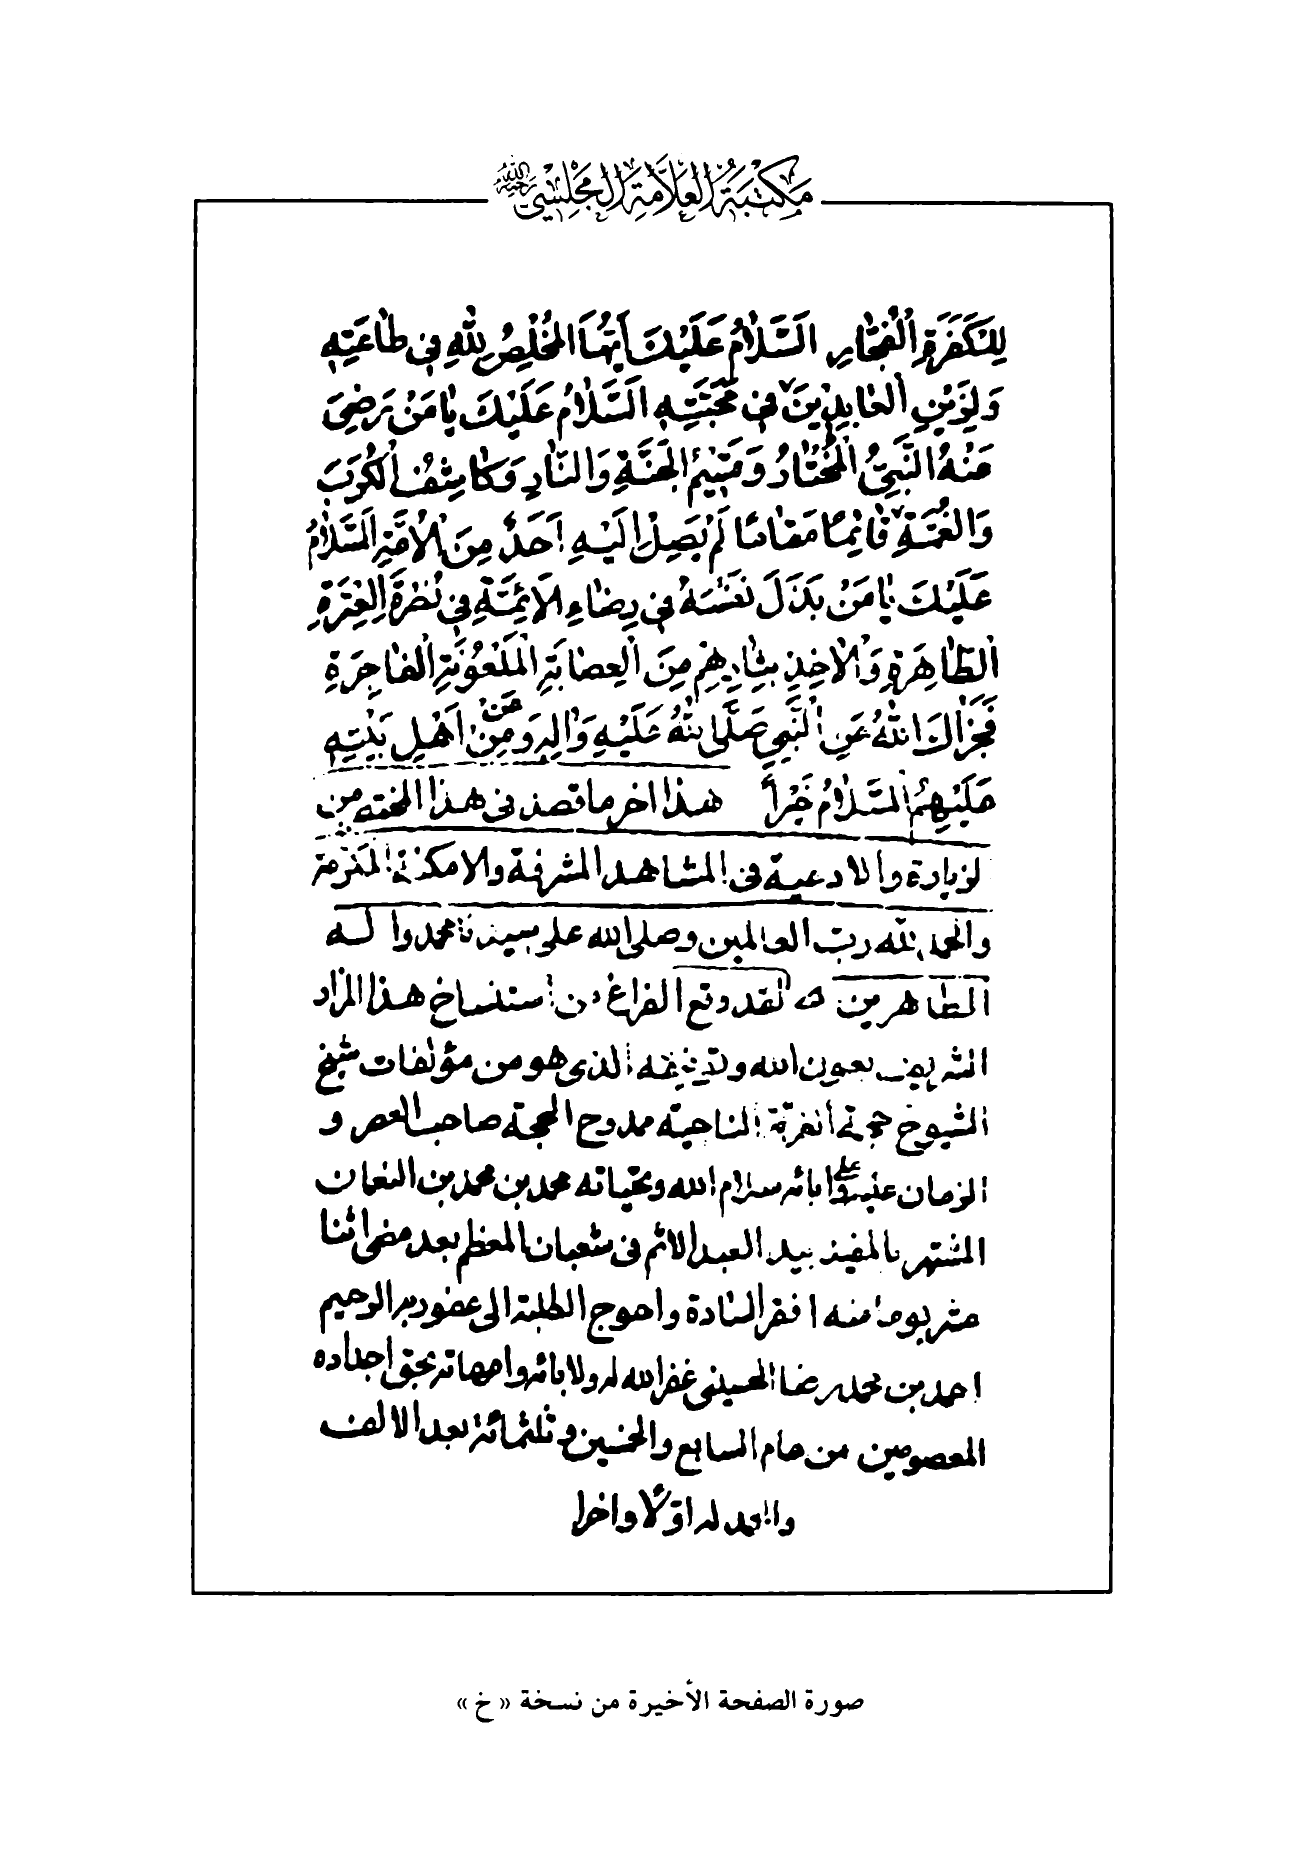 مَكتَبَةُ العَلّامَةِ المَجلِسِيّ رحمه الله
لِلْكَفَرَةِ الْفُجّٰارِ اَلسَّلٰامُ عَلَيْكَ اَيُّهَا الْمُخْلِصُ لِلّٰهِ فِي طٰاعَتِهِ
وَلِزَيْنِ الْعٰابِدِينَ فِي مَحَبَّتِهِ اَلسَّلٰامُ عَلَيْكَ يٰا مَنْ رَضِيَ
مِنْهُ النَّبِيُّ الْمُخْتٰارُ وَقَسِيمُ الْجَنَّةِ وَالنّٰارِ وَكٰاشِفُ الْكُرَبِ
وَالْغُمَّةِ قٰائِمًا مَقٰامًا لَمْ يَصِلْ اِلَيْهِ اَحَدٌ مِنَ الْاُمَّةِ اَلسَّلٰامُ
عَلَيْكَ يٰا مَنْ بَذَلَ نَفْسَهُ فِي رِضٰاءِ الْاَئِمَّةِ فِي نُصْرَةِ الْعِتْرَةِ
الطّٰاهِرَةِ وَالْاٰخِذِ بِثٰارِهِمْ مِنَ الْعِصٰابَةِ الْمَلْعُونَةِ الْفٰاجِرَةِ
فَجَزٰاكَ اللّٰهُ عَنِ النَّبِيِّ صَلَّى اللّٰهُ عَلَيْهِ وَاٰلِهِ وَ عَنْ مِنْ اَهْلِ بَيْتِهِ
عَلَيْهِمُ السَّلٰامُ خَيْراً هذا اخر ما قصد فى هذا المختصر من
لزيارة والادعية فى المشاهد المشرفة والامكنة
والحمد لله رب العالمين وصلى الله على سيدنا محمد واله
الطاهرين لقد وقع الفراغ من استنساخ هذا المزار
الشريف بعون الله و الذى هو من مؤلفات شيخ
الشيوخ حجة الفرقة الناحية ممدوح الحجة صاحب العصر و
الزمان عليه وعلى ابائه سلام الله وتحياته محمد بن محمد بن النعمان
المشتهر بالمفيد بيد العبد الاثم فى شعبان المعظم بعد مضى اثنا
عشر يوما منه افقر السادة واحوج الطلبة الى عفو ربه الرحيم
احمد بن محمد رضا الحسينى غفر الله له ولابائه وامهاته بحق اجداده
المعصومين من عام السابع والخمسين وثلثمائة بعد الالف
والحمد له اوّلًا واخرا
صورة الصفحة الأخيرة من نسخة « خ »